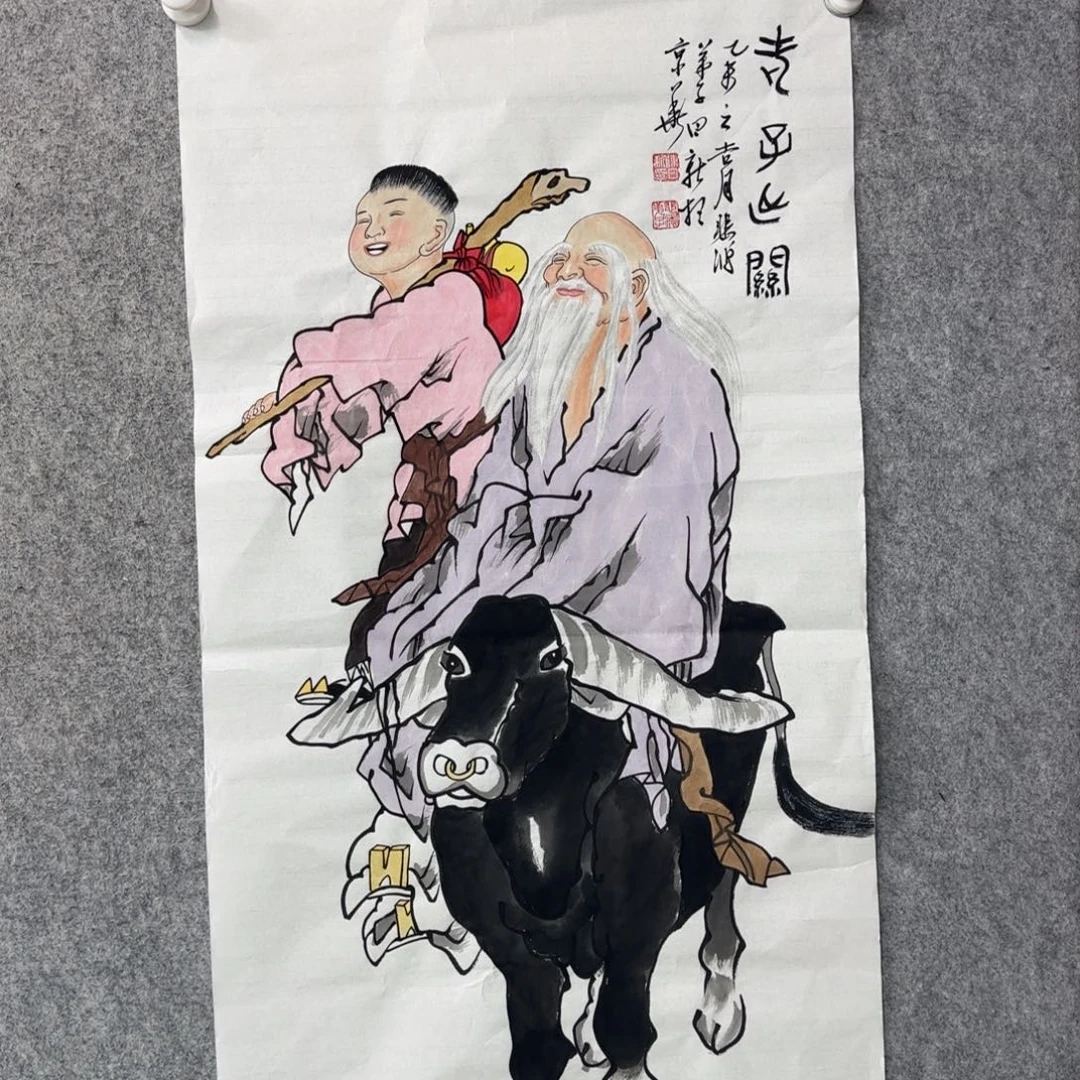 老子出關
乙未之月悲鴻
弟子田新於
京華